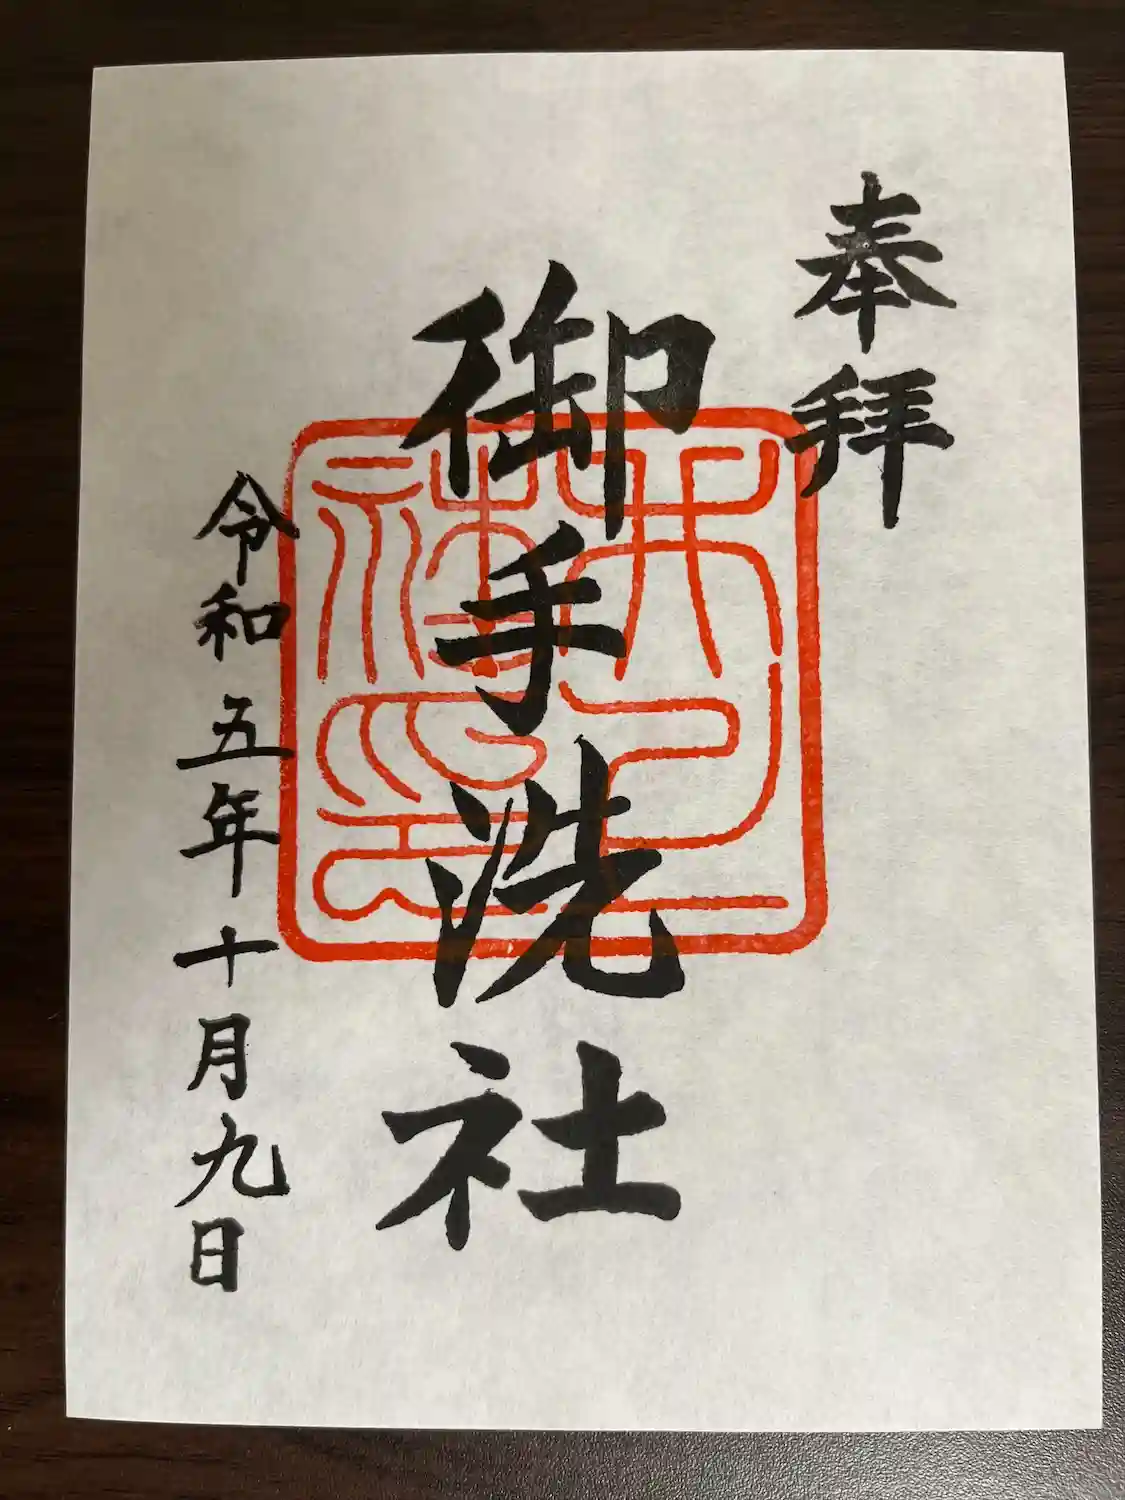 奉拝
御手洗社
令和五年十月九日